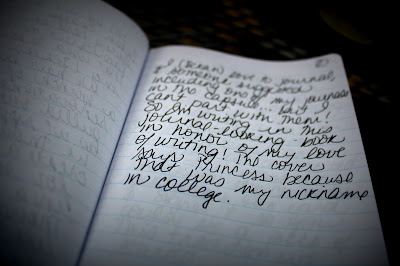 I love to journal,
& someone suggested
including one of my journals
in the capsule, but I
can't part with them!
So I'm writing in this
journal-looking-book
in honor of my love
of writing! The cover
says Princess because
that was my nickname
in college.